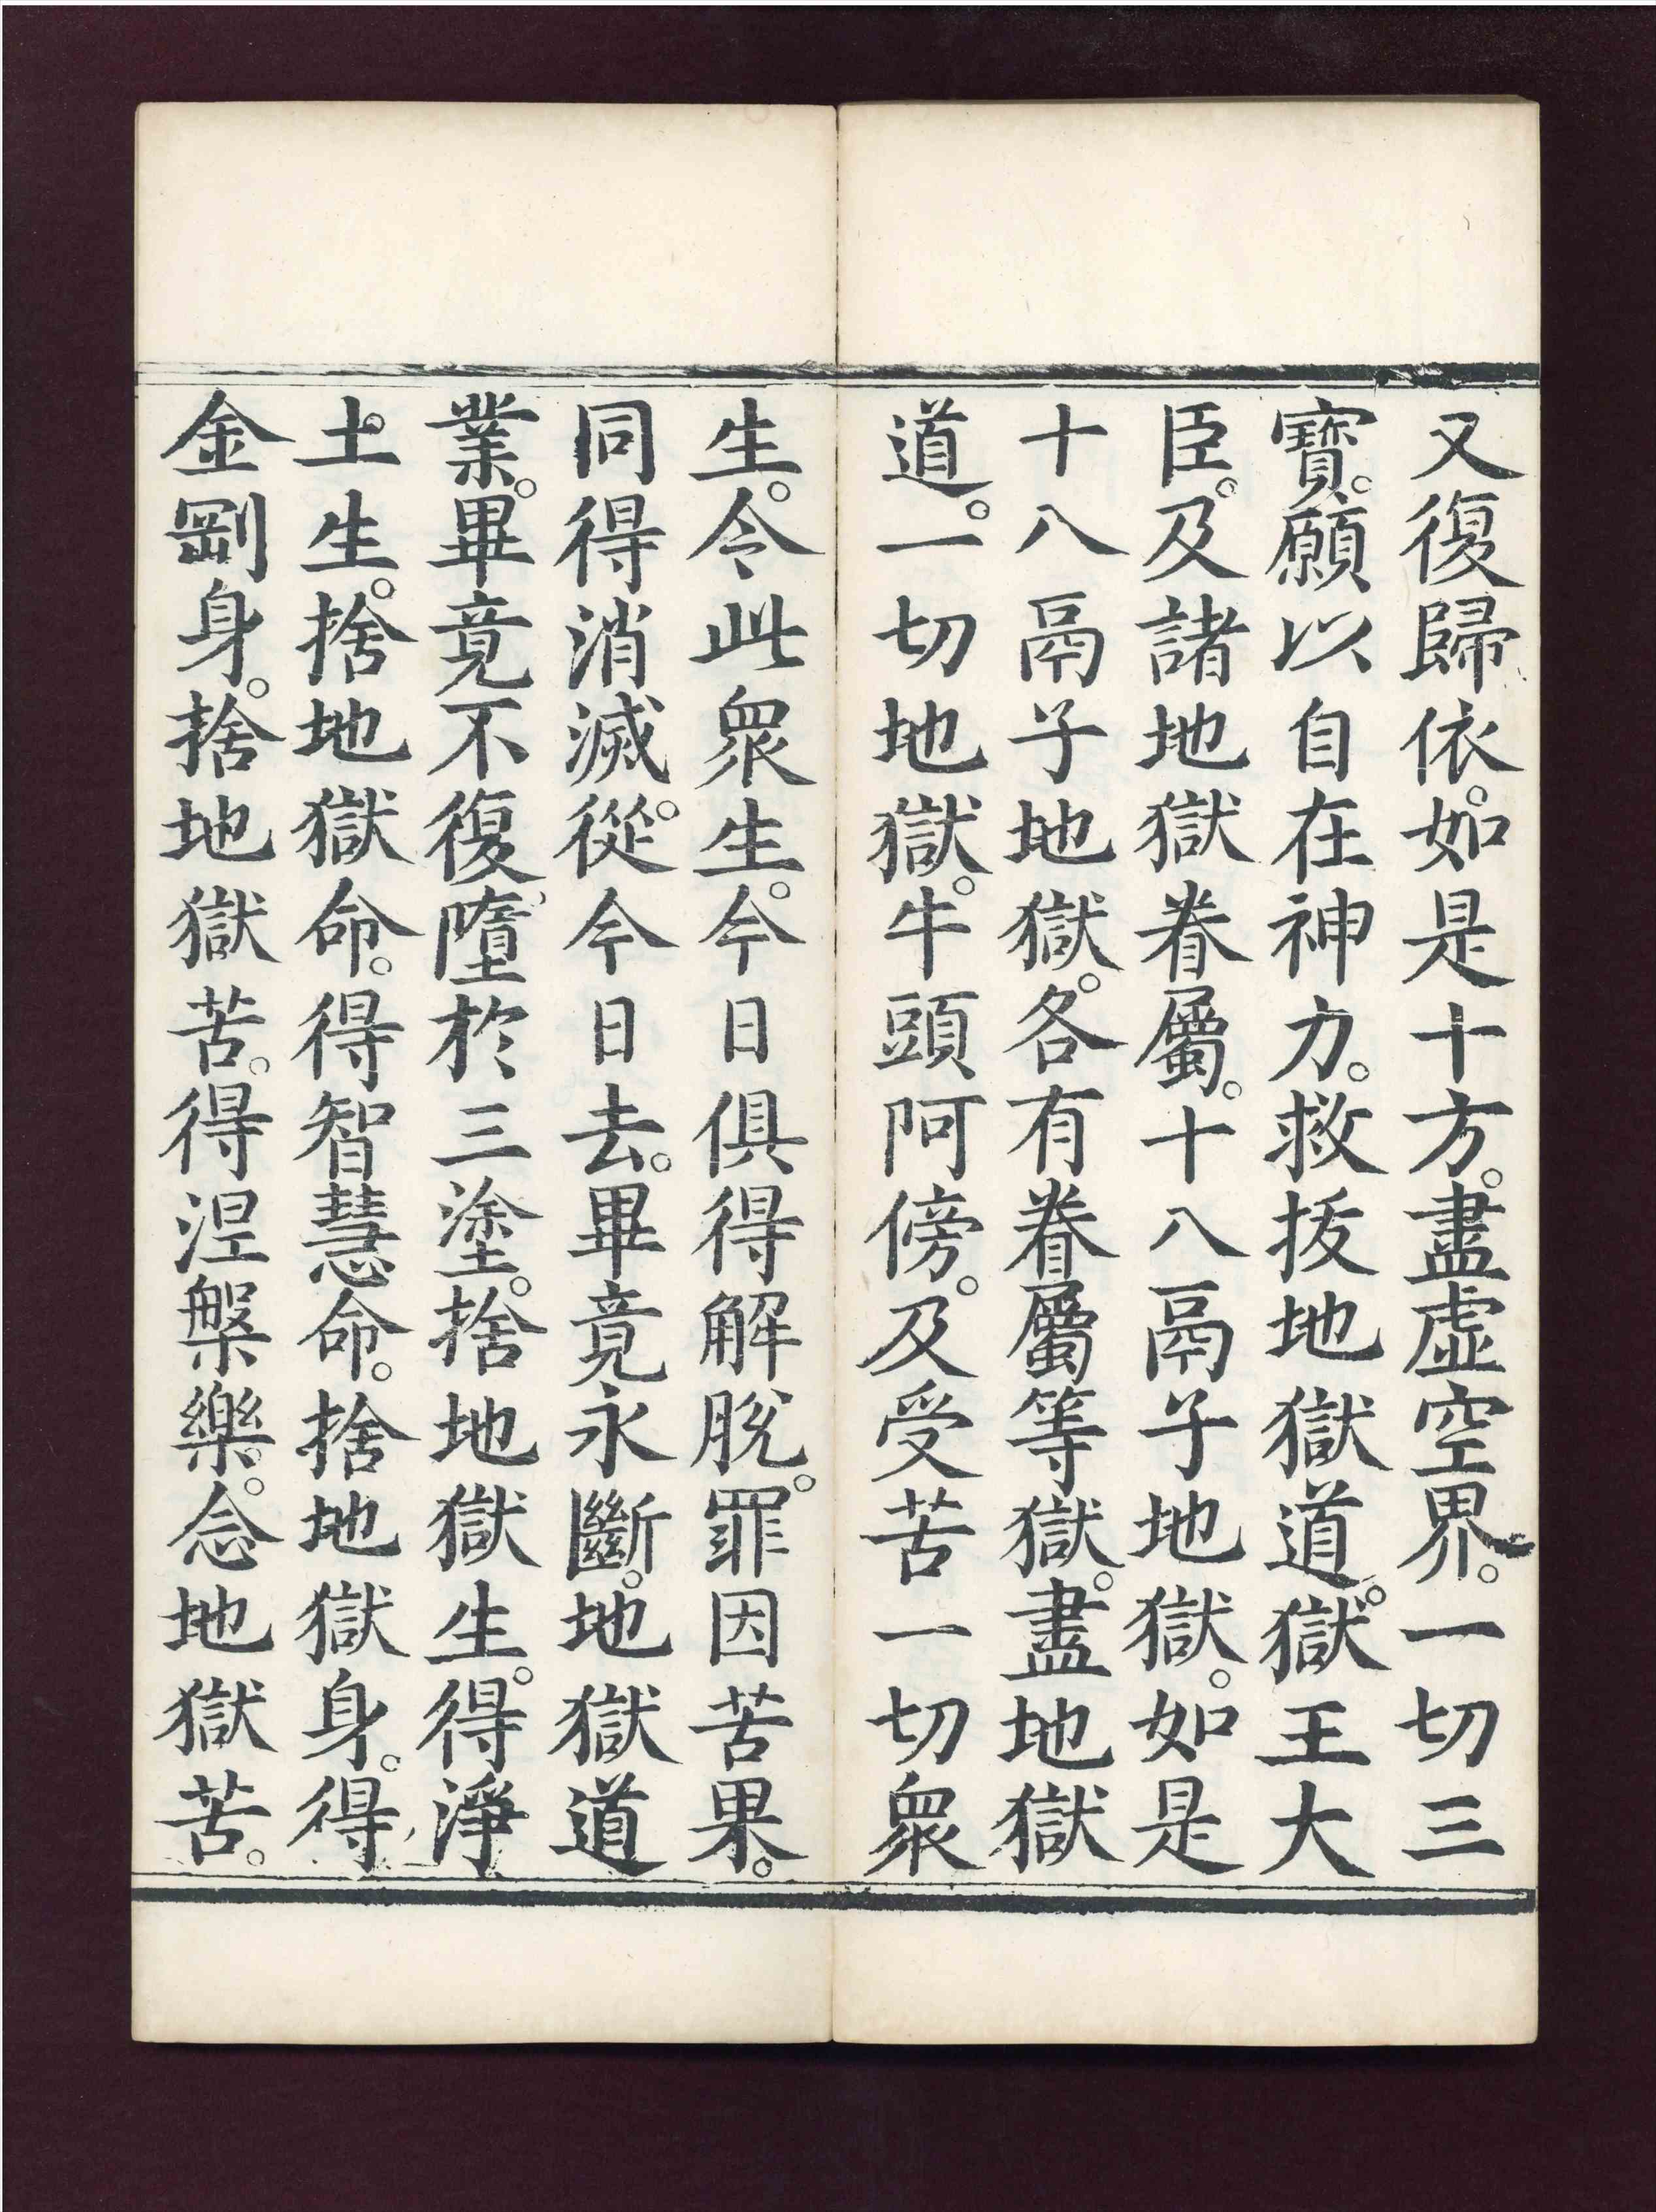 又復歸依。如是十方。盡虛空界。一切三
寶。願以自在神力。救拔地獄道。獄王大
臣。及諸地獄眷屬。十八鬲子地獄。如是
十八鬲子地獄。各有眷屬等獄。盡地獄
道。一切地獄。牛頭阿傍。及受苦一切眾
生。令此眾生。今日俱得解脫。罪因苦果。
同得消滅。從今日去。畢竟永斷。地獄道
業。畢竟不復墮於三塗。捨地獄生。得淨
土生。捨地獄命。得智慧命。捨地獄身。得
金剛身。捨地獄苦。得涅槃樂。念地獄苦。